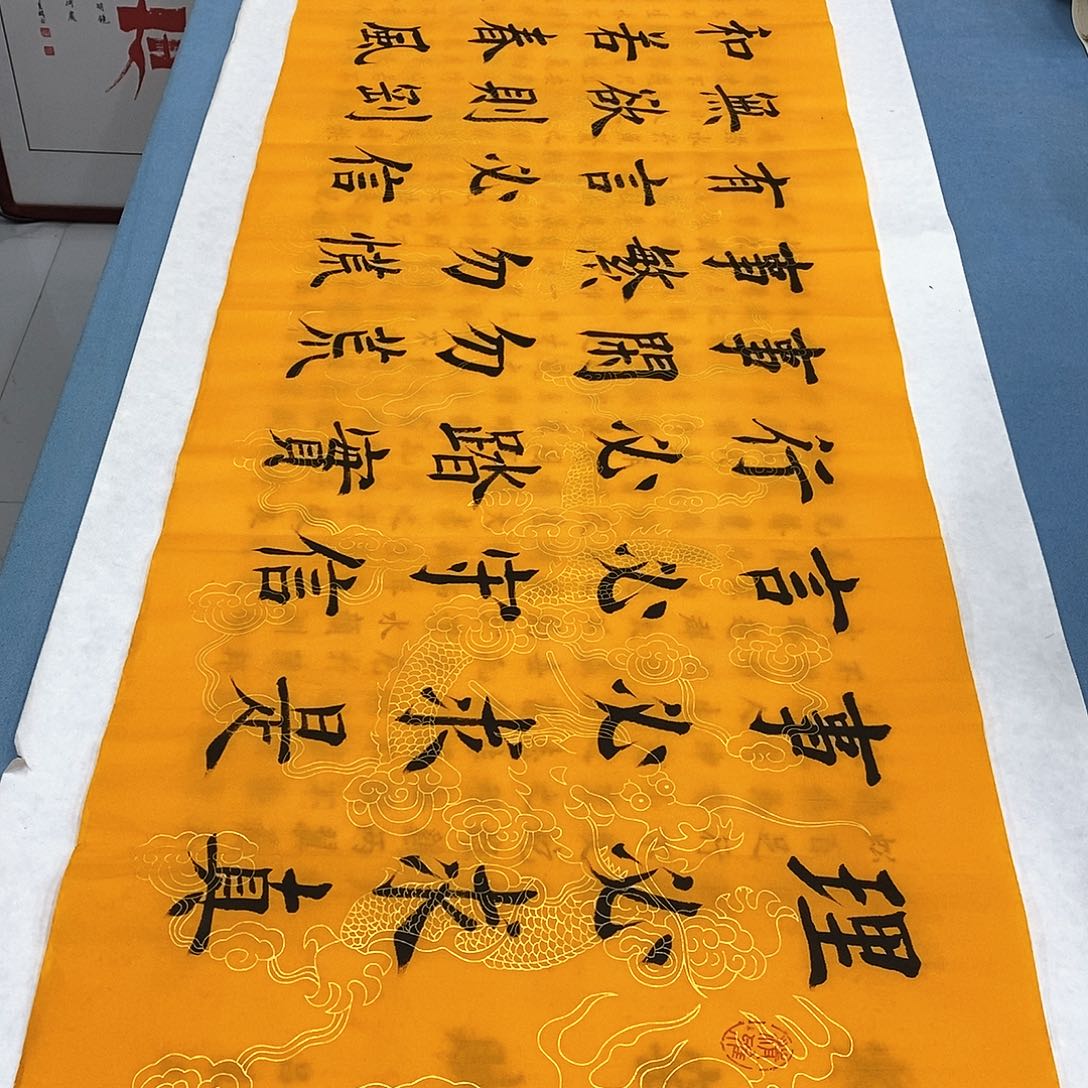 理必求真
事必求是
言必守信
行必踏實
事閑勿荒
事繁勿慌
有言必信
無欲則剛
和若春風